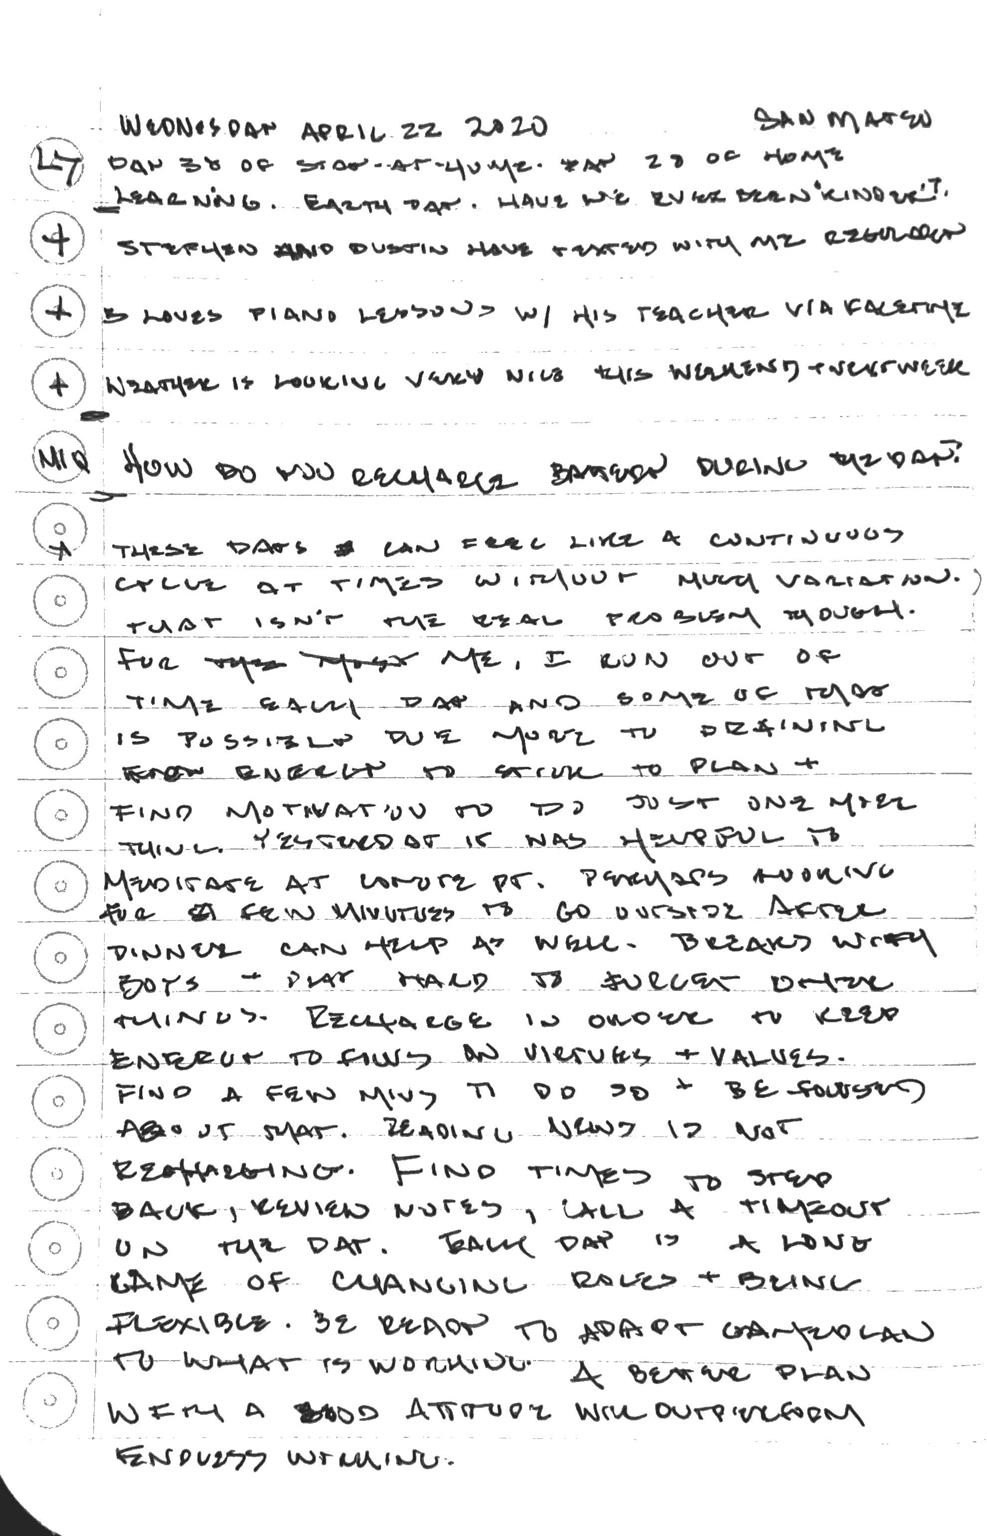 WEDNESDAY APRIL 22 2020 SAN MATEO
L7 DAY 38 OF STAY-AT-HOME. DAY 28 OF HOME
LEARNING. EARTH DAY. HAVE WE EVER BEEN "KINDER"?.
+ STEPHEN AND DUSTIN HAVE TEXTED WITH ME REGULARLY
+ B LOVES PIANO LESSONS W/ HIS TEACHER VIA FACETIME
+ WEATHER IS LOOKING VERY NICE THIS WEEKEND + NEXT WEEK
MIQ HOW DO YOU RECHARGE BATTERY DURING THE DAY?
THESE DAYS CAN FEEL LIKE A CONTINUOUS
CYCLE AT TIMES WITHOUT MUCH VARIATION.
THAT ISN'T THE REAL PROBLEM THOUGH.
FOR ME, I RUN OUT OF
TIME EACH DAY AND SOME OF THAT
IS POSSIBLY DUE MORE TO DRAINING
ENERGY TO STICK TO PLAN +
FIND MOTIVATION TO DO JUST ONE MORE
THING. YESTERDAY IT WAS HELPFUL TO
MEDITATE AT COYOTE PT. PERHAPS LOOKING
FOR A FEW MINUTES TO GO OUTSIDE AFTER
DINNER CAN HELP AS WELL. BREAKS WITH
BOYS + PLAY HARD TO FORGET OTHER
THINGS. RECHARGE IN ORDER TO KEEP
ENERGY TO FOCUS ON VIRTUES + VALUES.
FIND A FEW MINS TO DO SO + BE FOCUSED
ABOUT THAT. READING NEWS IS NOT
RECHARGING. FIND TIMES TO STEP
BACK, REVIEW NOTES, CALL A TIMEOUT
ON THE DAY. EACH DAY IS A LONG
GAME OF CHANGING ROLES + BEING
FLEXIBLE. BE READY TO ADAPT GAMEPLAN
TO WHAT IS WORKING. A BETTER PLAN
WITH A GOOD ATTITUDE WILL OUTPERFORM
ENDLESS WILLING.